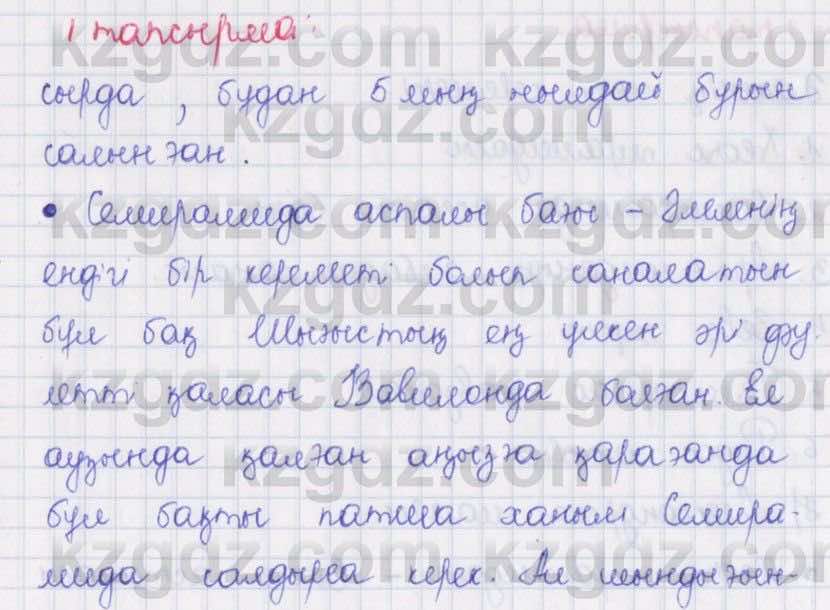 1 тапсырма:
сырда, бұдан 5 мың жылдай бұрын
салынған.
• Семирамида аспалы бағы – Әлемнің
ендігі бір кереметі болып саналатын
бұл бақ Шығыстың ең үлкен әрі дәу
летті қаласы Вавилонда болған. Ел
аузында қалған аңызға қарағанда
бұл бақты патша ханым Семира-
мида салдырса керек. Ал шындығын-
kzgdz.com